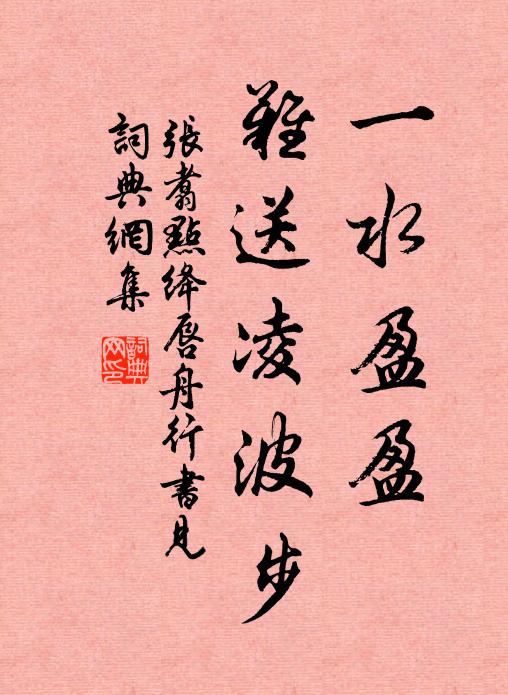 一水盈盈
難送凌波步
張翥點絳唇舟行書見
詞典網集
詞典網印